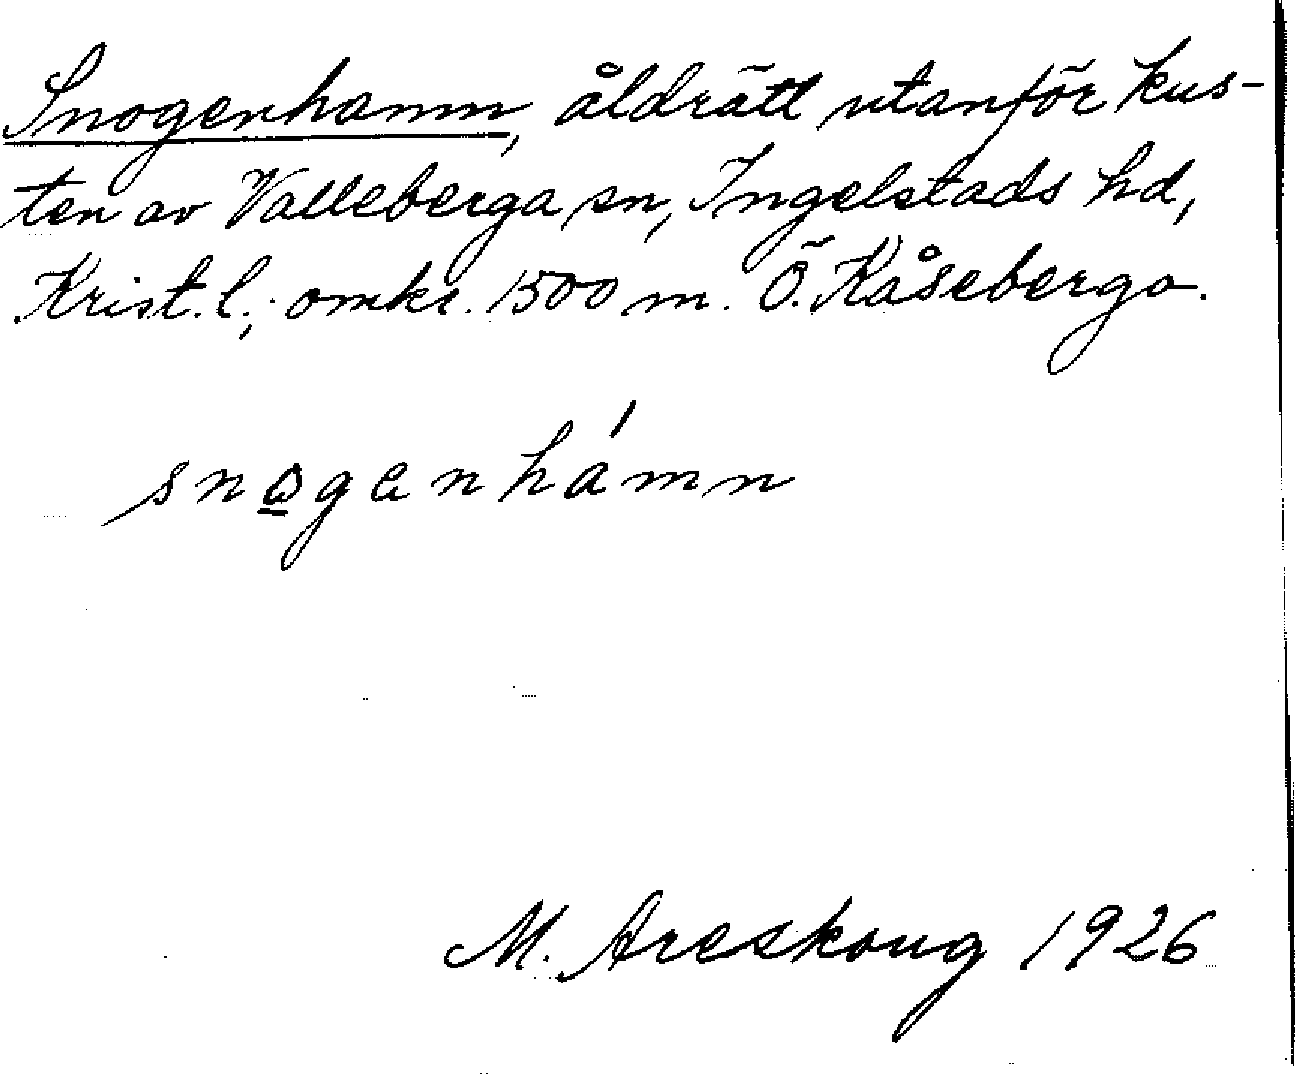 Snogenhamn, åldrätt utanför kus-
ten av Valleberga sn, Ingelstads hd,
Krist. l.; omkr. 1500 m. Ö. Kåseberga.
snogenhámn
M. Areskoug 1926